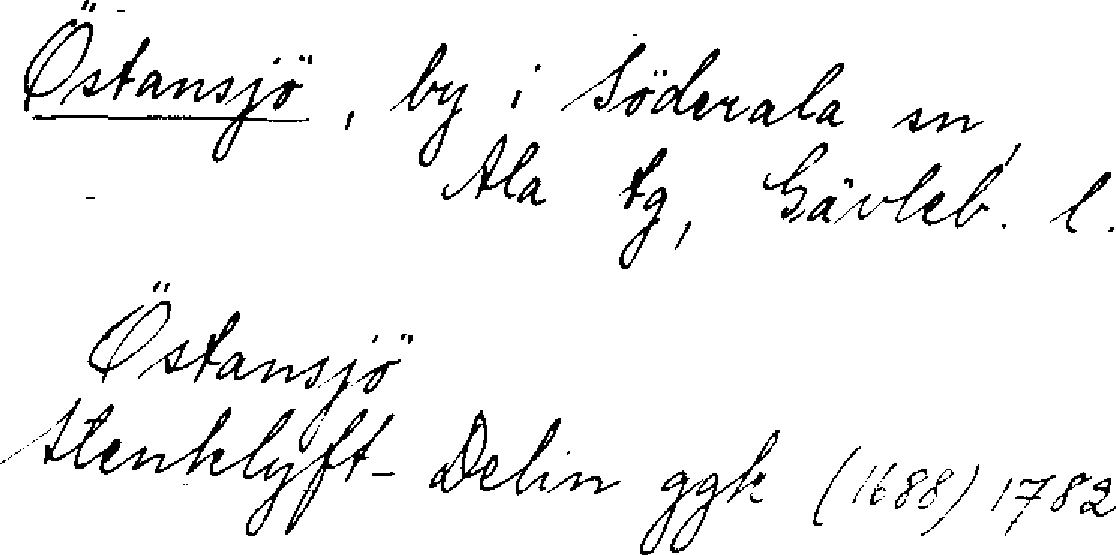 Östansjö, by i Söderala sn,
Ala tg, Gävleb. l.
Östansjö
Stenklyft- Delin ggk (1688) 1782